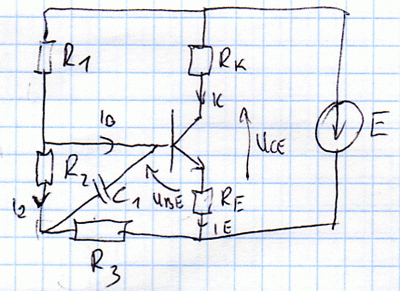 R1
RK
IB
IK
UCE
E
R2
C1
UBE
RE
I2
IE
R3